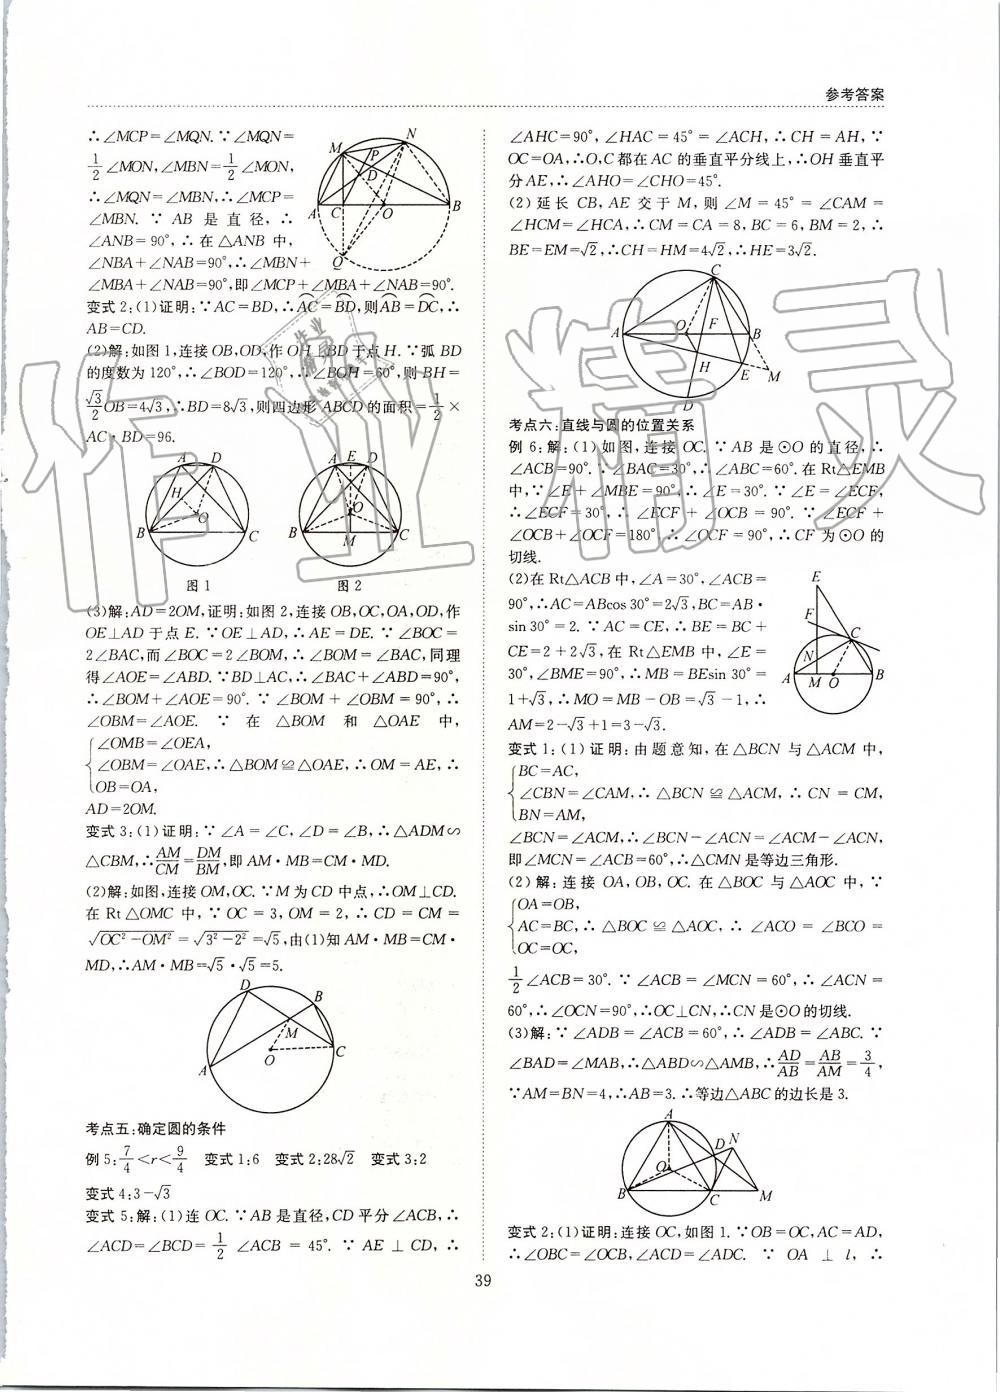 参考答案
∴∠MCP=∠MQN.∵∠MQN=
1/2∠MON,∠MBN=1/2∠MON,
∴∠MQN=∠MBN,∴∠MCP=
∠MBN.∵AB是直径,∴
∠ANB=90°,∴在△ANB中,
∠NBA+∠NAB=90°,∴∠MBN+
∠MBA+∠NAB=90°,即∠MCP+∠MBA+∠NAB=90°.
M N P D A C O B Q
变式2:(1)证明:∵AC=BD,∴⌒AC=⌒BD,则⌒AB=⌒DC,∴
AB=CD.
(2)解:如图1,连接OB,OD,作OH⊥BD于点H.∵弧BD
的度数为120°,∴∠BOD=120°,∴∠BOH=60°,则BH=
√3/2OB=4√3,∴BD=8√3,则四边形ABCD的面积=1/2×
AC·BD=96.
A D H O B C
图1
A E D O B M C
图2
(3)解:AD=2OM,证明:如图2,连接OB,OC,OA,OD,作
OE⊥AD于点E.∵OE⊥AD,∴AE=DE.∵∠BOC=
2∠BAC,而∠BOC=2∠BOM,∴∠BOM=∠BAC,同理
得∠AOE=∠ABD.∵BD⊥AC,∴∠BAC+∠ABD=90°,
∴∠BOM+∠AOE=90°.∵∠BOM+∠OBM=90°,∴
∠OBM=∠AOE.∵在△BOM和△OAE中,
∠OMB=∠OEA,
∠OBM=∠OAE,∴△BOM≌△OAE,∴OM=AE,∴
OB=OA,
AD=2OM.
变式3:(1)证明:∵∠A=∠C,∠D=∠B,∴△ADM∽
△CBM,∴AM/CM=DM/BM,即AM·MB=CM·MD.
(2)解:如图,连接OM,OC.∵M为CD中点,∴OM⊥CD.
在Rt△OMC中,∵OC=3,OM=2,∴CD=CM=
√(OC²-OM²)=√(3²-2²)=√5,由(1)知AM·MB=CM·
MD,∴AM·MB=√5·√5=5.
D B M A O C
考点五:确定圆的条件
例5:7/4<r<9/4 变式1:6 变式2:28√2 变式3:2
变式4:3-√3
变式5:解:(1)连OC.∵AB是直径,CD平分∠ACB,∴
∠ACD=∠BCD=1/2∠ACB=45°.∵AE⊥CD,∴
∠AHC=90°,∠HAC=45°=∠ACH,∴CH=AH,∵
OC=OA,∴O,C都在AC的垂直平分线上,∴OH垂直平
分AE,∴∠AHO=∠CHO=45°.
(2)延长CB,AE交于M,则∠M=45°=∠CAM=
∠HCM=∠HCA,∴CM=CA=8,BC=6,BM=2,∴
BE=EM=√2,∴CH=HM=4√2,∴HE=3√2.
C A O F B H E M D
考点六:直线与圆的位置关系
例6:解:(1)如图,连接OC.∵AB是⊙O的直径,∴
∠ACB=90°.∵∠BAC=30°,∴∠ABC=60°.在Rt△EMB
中,∵∠E+∠MBE=90°,∴∠E=30°.∵∠E=∠ECF,
∴∠ECF=30°,∴∠ECF+∠OCB=90°.∵∠ECF+
∠OCB+∠OCF=180°,∴∠OCF=90°,∴CF为⊙O的
切线.
(2)在Rt△ACB中,∠A=30°,∠ACB=
90°,∴AC=ABcos 30°=2√3,BC=AB·
sin 30°=2.∵AC=CE,∴BE=BC+
CE=2+2√3,在Rt△EMB中,∠E=
30°,∠BME=90°,∴MB=BEsin 30°=
1+√3,∴MO=MB-OB=√3-1,∴
AM=2-√3+1=3-√3.
E F C N A M O B
变式1:(1)证明:由题意知,在△BCN与△ACM中,
BC=AC,
∠CBN=∠CAM,∴△BCN≌△ACM,∴CN=CM,
BN=AM,
∠BCN=∠ACM,∴∠BCN-∠ACN=∠ACM-∠ACN,
即∠MCN=∠ACB=60°,∴△CMN是等边三角形.
(2)解:连接OA,OB,OC.在△BOC与△AOC中,∵
OA=OB,
AC=BC,∴△BOC≌△AOC,∴∠ACO=∠BCO=
OC=OC,
1/2∠ACB=30°.∵∠ACB=∠MCN=60°,∴∠ACN=
60°,∴∠OCN=90°,∴OC⊥CN,∴CN是⊙O的切线.
(3)解:∵∠ADB=∠ACB=60°,∴∠ADB=∠ABC.∵
∠BAD=∠MAB,∴△ABD∽△AMB,∴AD/AB=AB/AM=3/4,
∵AM=BN=4,∴AB=3.∴等边△ABC的边长是3.
A D N O B C M
变式2:(1)证明:连接OC,如图1.∵OB=OC,AC=AD,
∴∠OBC=∠OCB,∠ACD=∠ADC.∵OA⊥l,∴
39
作业精灵